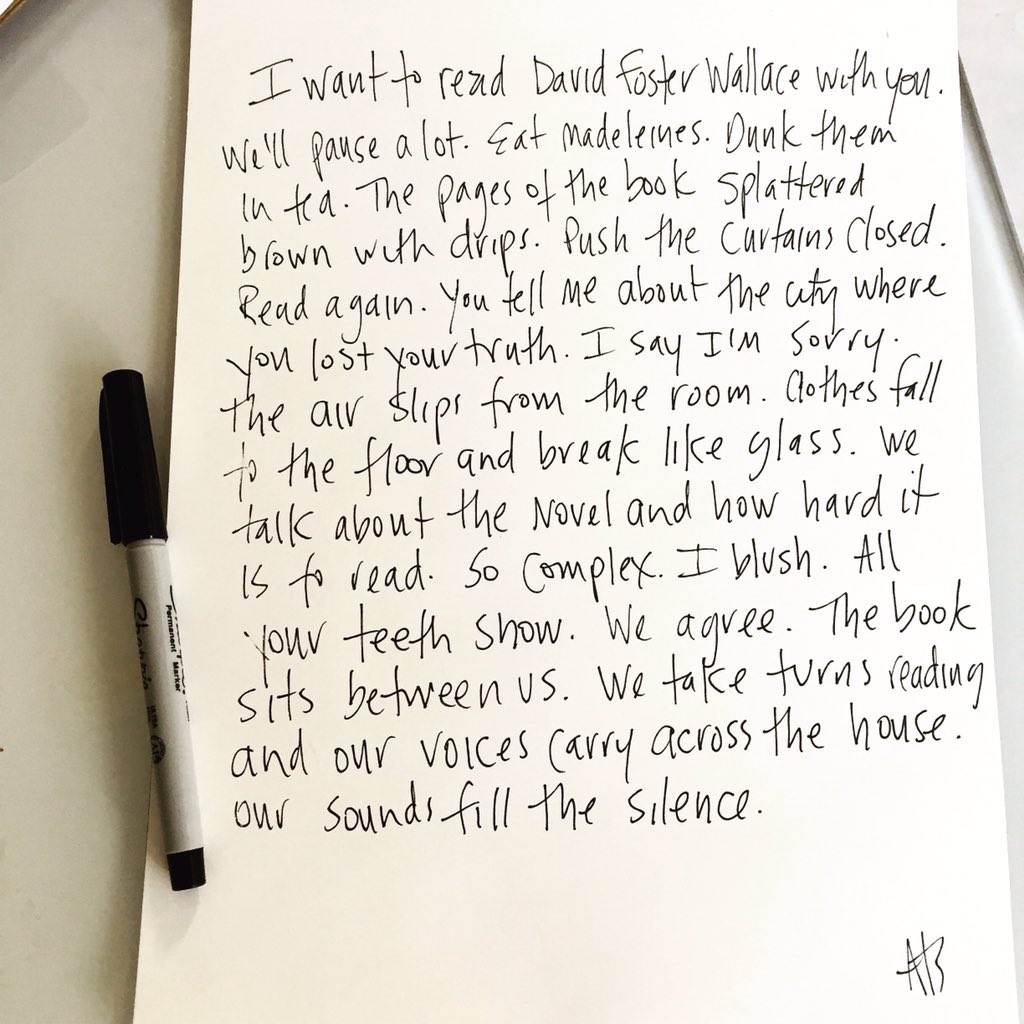 I want to read David Foster Wallace with you.
We'll pause a lot. Eat madeleines. Dunk them
in tea. The pages of the book splattered
brown with drips. Push the curtains closed.
Read again. You tell me about the city where
you lost your truth. I say I'm sorry.
The air slips from the room. Clothes fall
to the floor and break like glass. We
talk about the novel and how hard it
is to read. So complex. I blush. All
your teeth show. We agree. The book
sits between us. We take turns reading
and our voices carry across the house.
Our sounds fill the silence.
AB
Sharpie
Permanent Marker